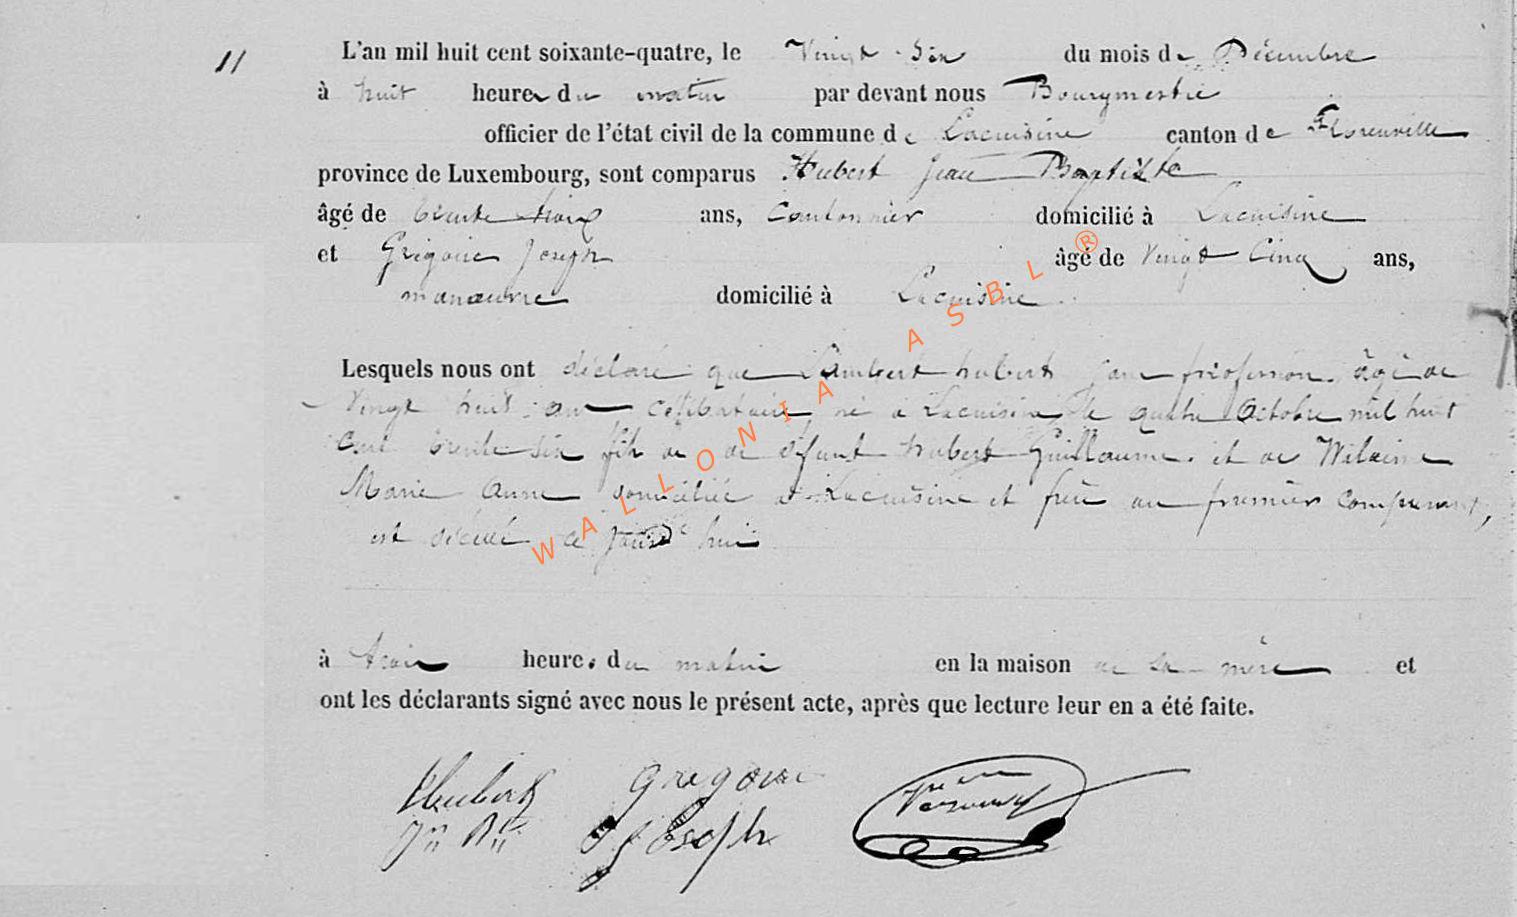 11
L'an mil huit cent soixante-quatre, le Vingt Six du mois de Décembre
à huit heures du matin par devant nous Bourgmestre
officier de l'état civil de la commune de Lacuisine canton de Florenville
province de Luxembourg, sont comparus Hubert Jean Baptiste
âgé de trente ans, Cantonnier domicilié à Lacuisine
et Grégoire Joseph âgé de Vingt Cinq ans,
manœuvre domicilié à Lacuisine
Lesquels nous ont déclaré que Lambert hubert sans profession âgé de
Vingt huit ans Célibataire né à Lacuisine le quatre Octobre mil huit
Cent trente six fils de de défunt hubert Guillaume et de
Marie Anne domiciliée à Lacuisine et frère au premier comparant,
est décédé ce jourd'hui
à trois heures du matin en la maison de sa mère et
ont les déclarants signé avec nous le présent acte, après que lecture leur en a été faite.
Hubert Gregoire
Jn Bte Joseph
WALLONIA ASBL ®